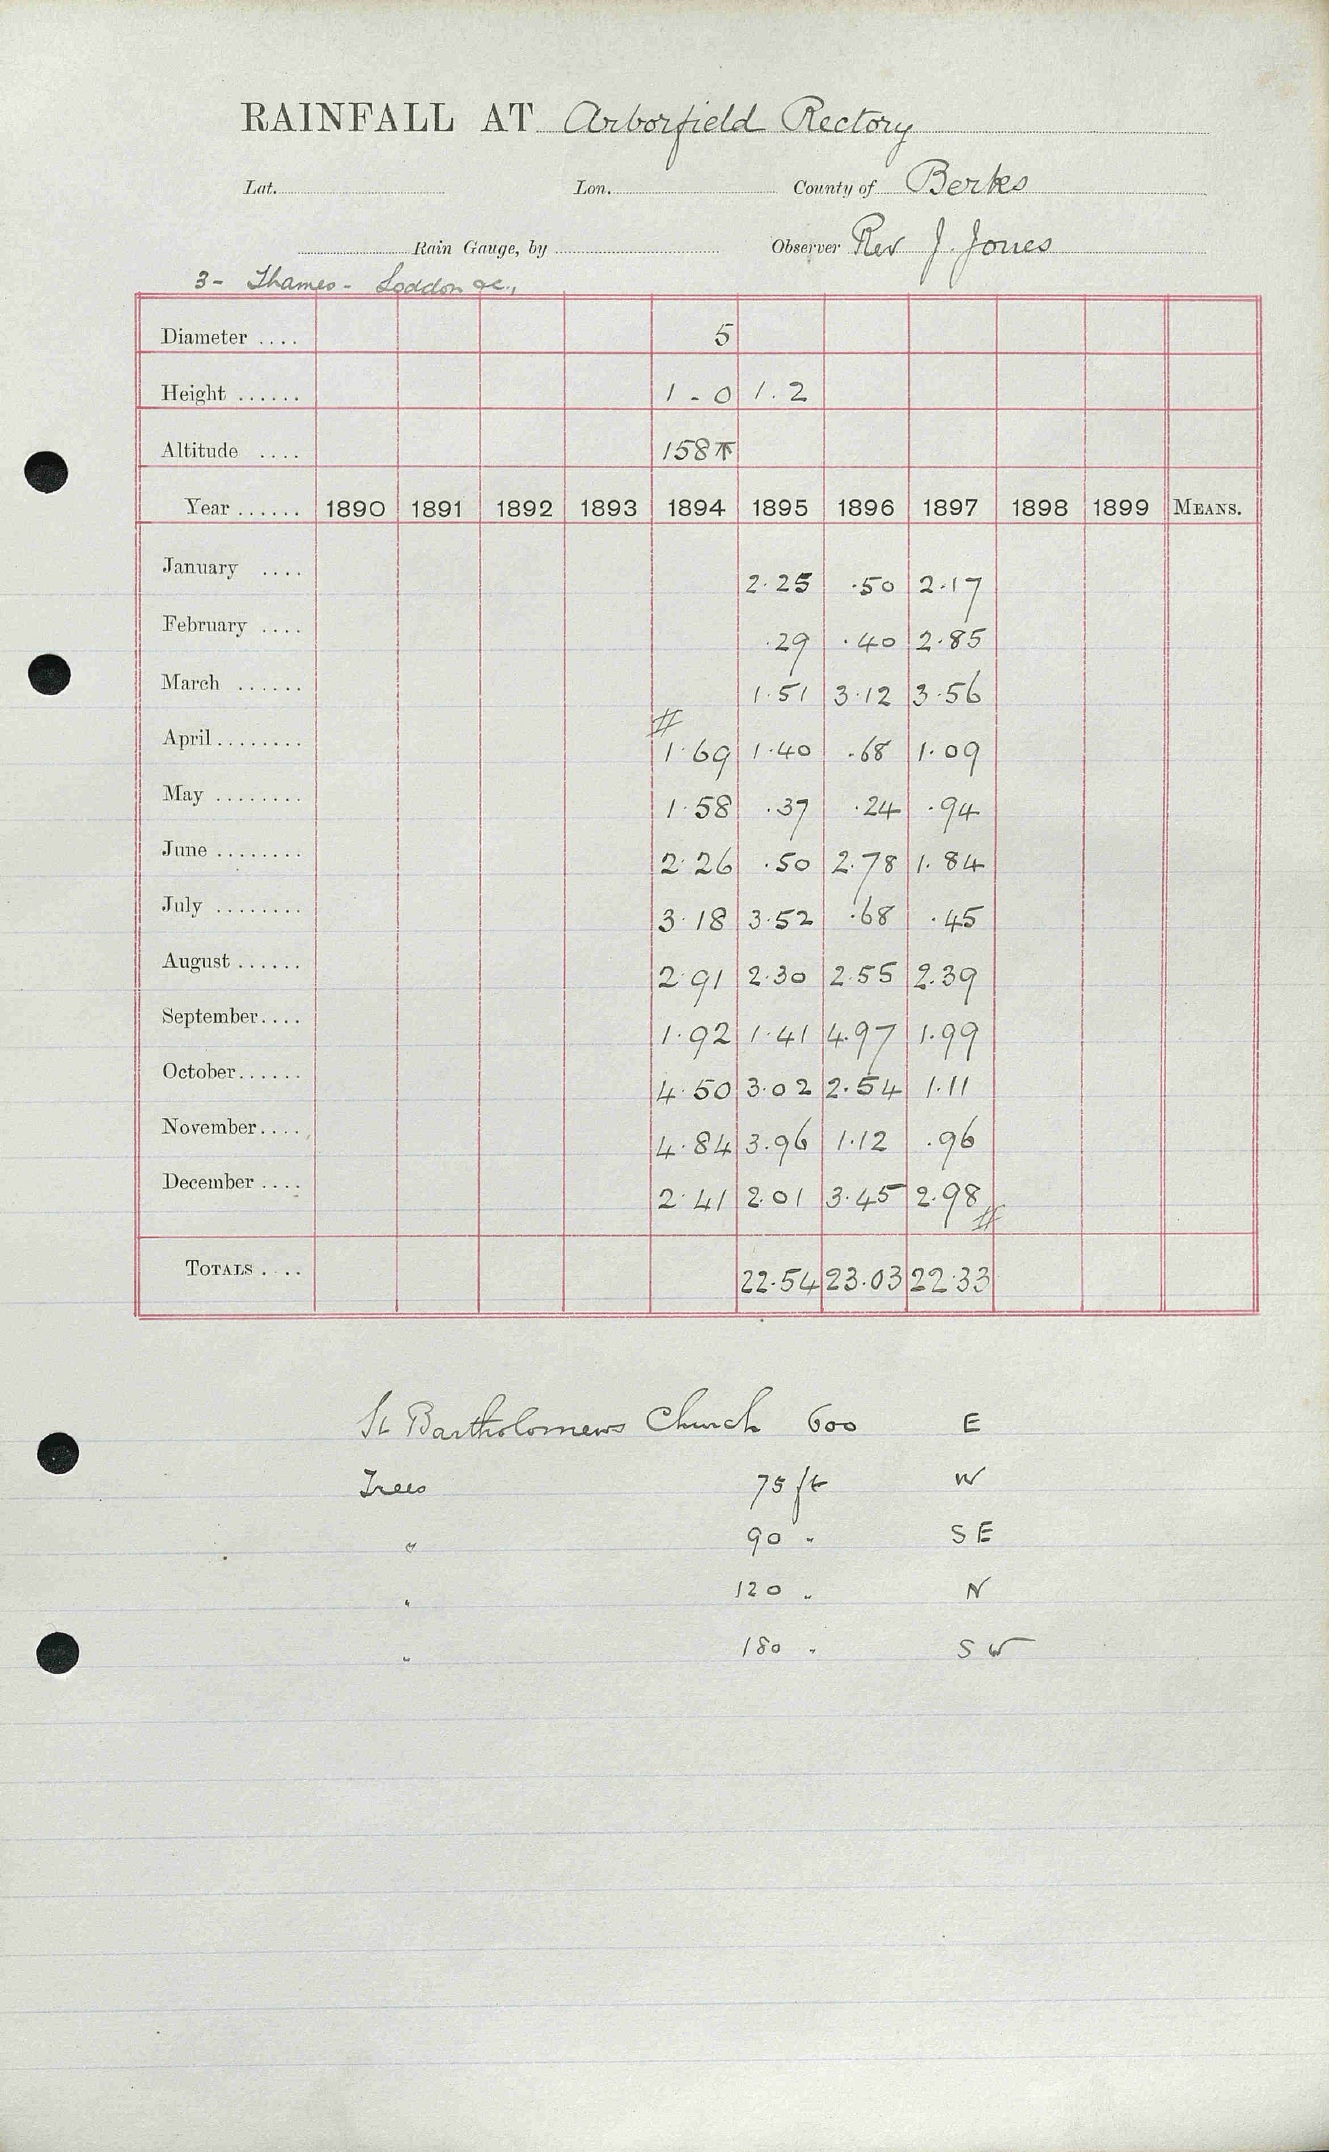 RAINFALL AT Arborfield Rectory
Lat. Lon. County of Berks
Rain Gauge, by Observer Rev J. Jones
3 - Thames - Loddon &c.,
Diameter .... 5
Height ...... 1 - 0 1.2
Altitude .... 158
Year ...... 1890 1891 1892 1893 1894 1895 1896 1897 1898 1899 MEANS.
January .... 2.25 .50 2.17
February .... .29 .40 2.85
March ...... 1.51 3.12 3.56
April ........ 1.69 1.40 .68 1.09
May ........ 1.58 .37 .24 .94
June ........ 2.26 .50 2.78 1.84
July ........ 3.18 3.52 .68 .45
August ...... 2.91 2.30 2.55 2.39
September .... 1.92 1.41 4.97 1.99
October ...... 4.50 3.02 2.54 1.11
November .... 4.84 3.96 1.12 .96
December .... 2.41 2.01 3.45 2.98
TOTALS .... 22.54 23.03 22.33
St Bartholomews Church 600 E
Trees 75 ft W
" 90 " SE
" 120 " N
" 180 " SW